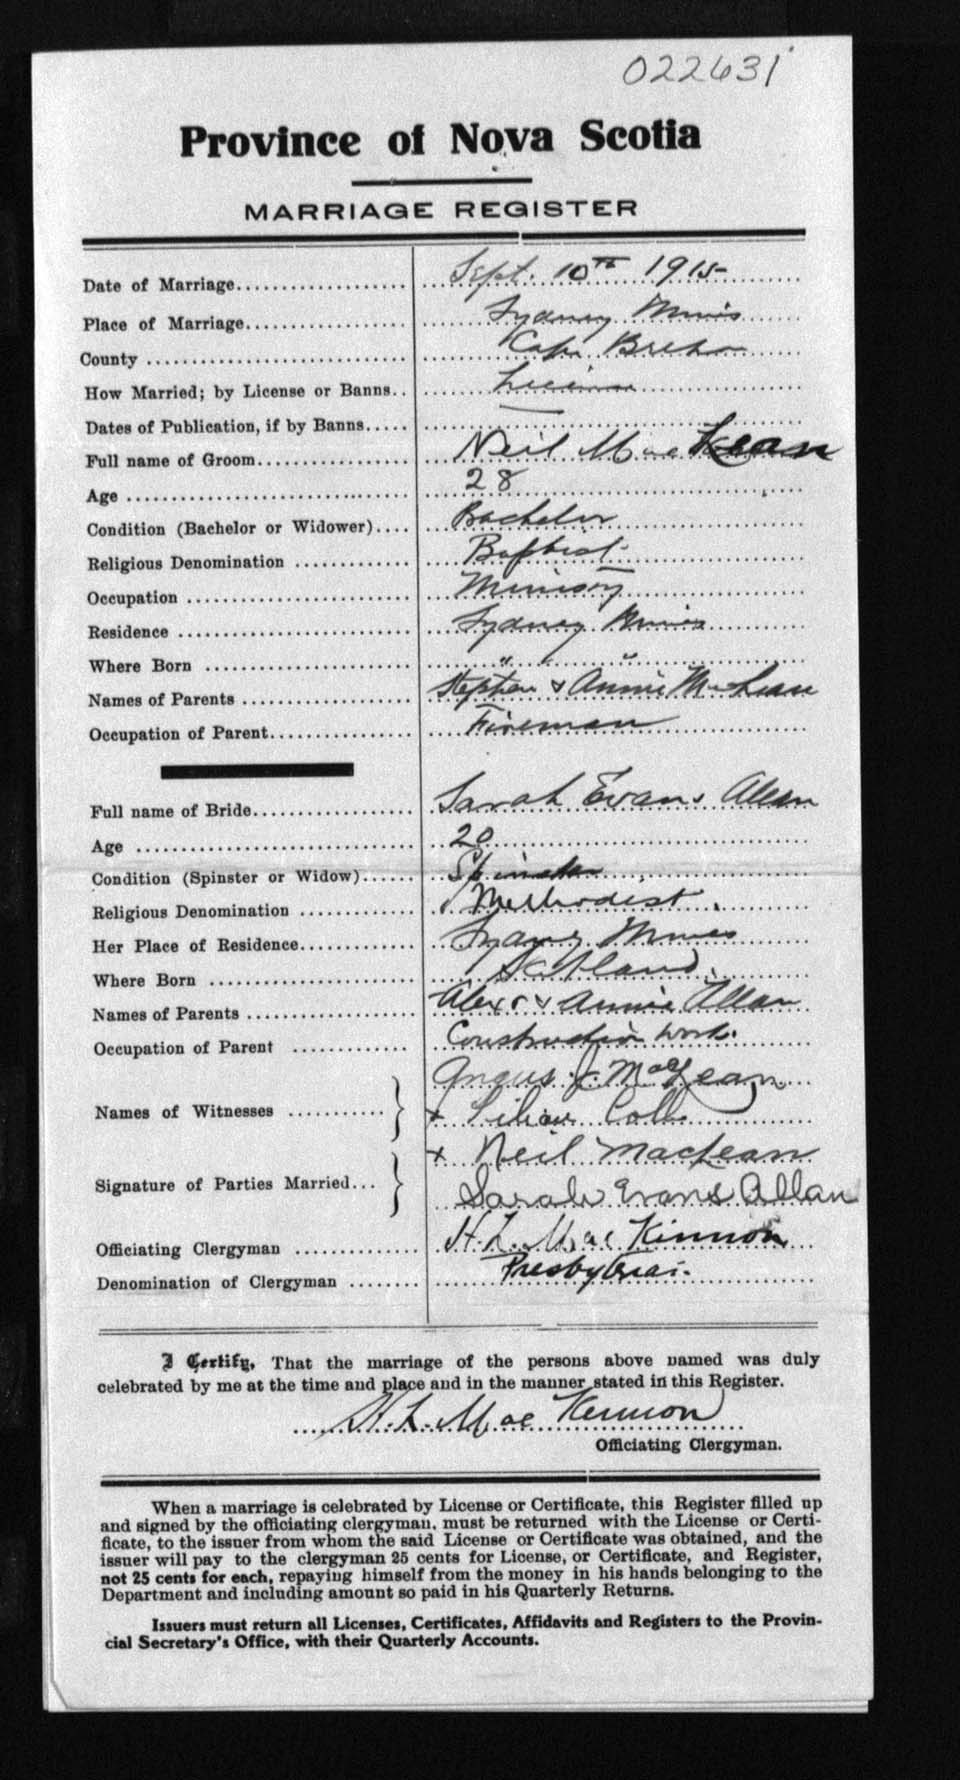 022631
Province of Nova Scotia
MARRIAGE REGISTER
Date of Marriage Sept. 10th 1915
Place of Marriage Sydney Mines
County Cape Breton
How Married; by License or Banns License
Dates of Publication, if by Banns —
Full name of Groom Neil Mac Lean
Age 28
Condition (Bachelor or Widower) Bachelor
Religious Denomination Baptist
Occupation
Residence Sydney Mines
Where Born " "
Names of Parents Stephen & Annie McLean
Occupation of Parent Fireman
Full name of Bride Sarah Evans Allan
Age 20
Condition (Spinster or Widow) Spinster
Religious Denomination Methodist
Her Place of Residence Sydney Mines
Where Born Scotland
Names of Parents Alexr & Annie Allan
Occupation of Parent Construction Work.
Names of Witnesses Angus J. MacLean
x Lilian
Signature of Parties Married x Neil MacLean
Sarah Evans Allan
Officiating Clergyman H. L. Mac Kinnon
Denomination of Clergyman Presbyterian
I Certify, That the marriage of the persons above named was duly
celebrated by me at the time and place and in the manner stated in this Register.
H. L. Mac Kinnon
Officiating Clergyman.
When a marriage is celebrated by License or Certificate, this Register filled up
and signed by the officiating clergyman, must be returned with the License or Certi-
ficate, to the issuer from whom the said License or Certificate was obtained, and the
issuer will pay to the clergyman 25 cents for License, or Certificate, and Register,
not 25 cents for each, repaying himself from the money in his hands belonging to the
Department and including amount so paid in his Quarterly Returns.
Issuers must return all Licenses, Certificates, Affidavits and Registers to the Provin-
cial Secretary's Office, with their Quarterly Accounts.